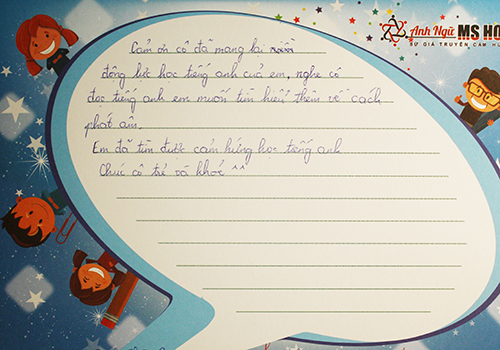 Anh Ngữ MS HO
SỨ GIẢ TRUYỀN CẢM H
Cảm ơn cô đã mang lại
động lực học tiếng anh của em, nghe cô
đọc tiếng anh em muốn tìm hiểu thêm về cách
phát âm.
Em đã tìm được cảm hứng học tiếng anh
Chúc cô trẻ và khoẻ ^^